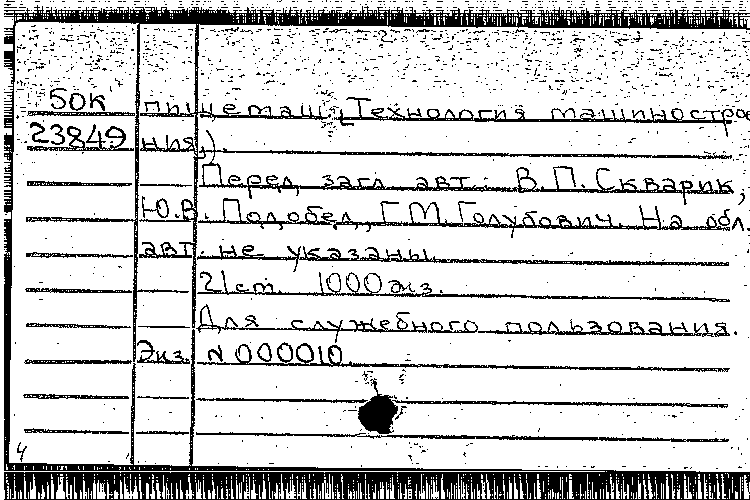 50К пищемаш, Технология машинострое
23849 ния,).
Перед загл. авт.: В.П. Скварик,
Ю.В. Подобед, Г.М. Голубович. На обл.
авт. не указаны.
21 ст. 1000 экз.
Для служебного пользования.
Экз. N 000010
4